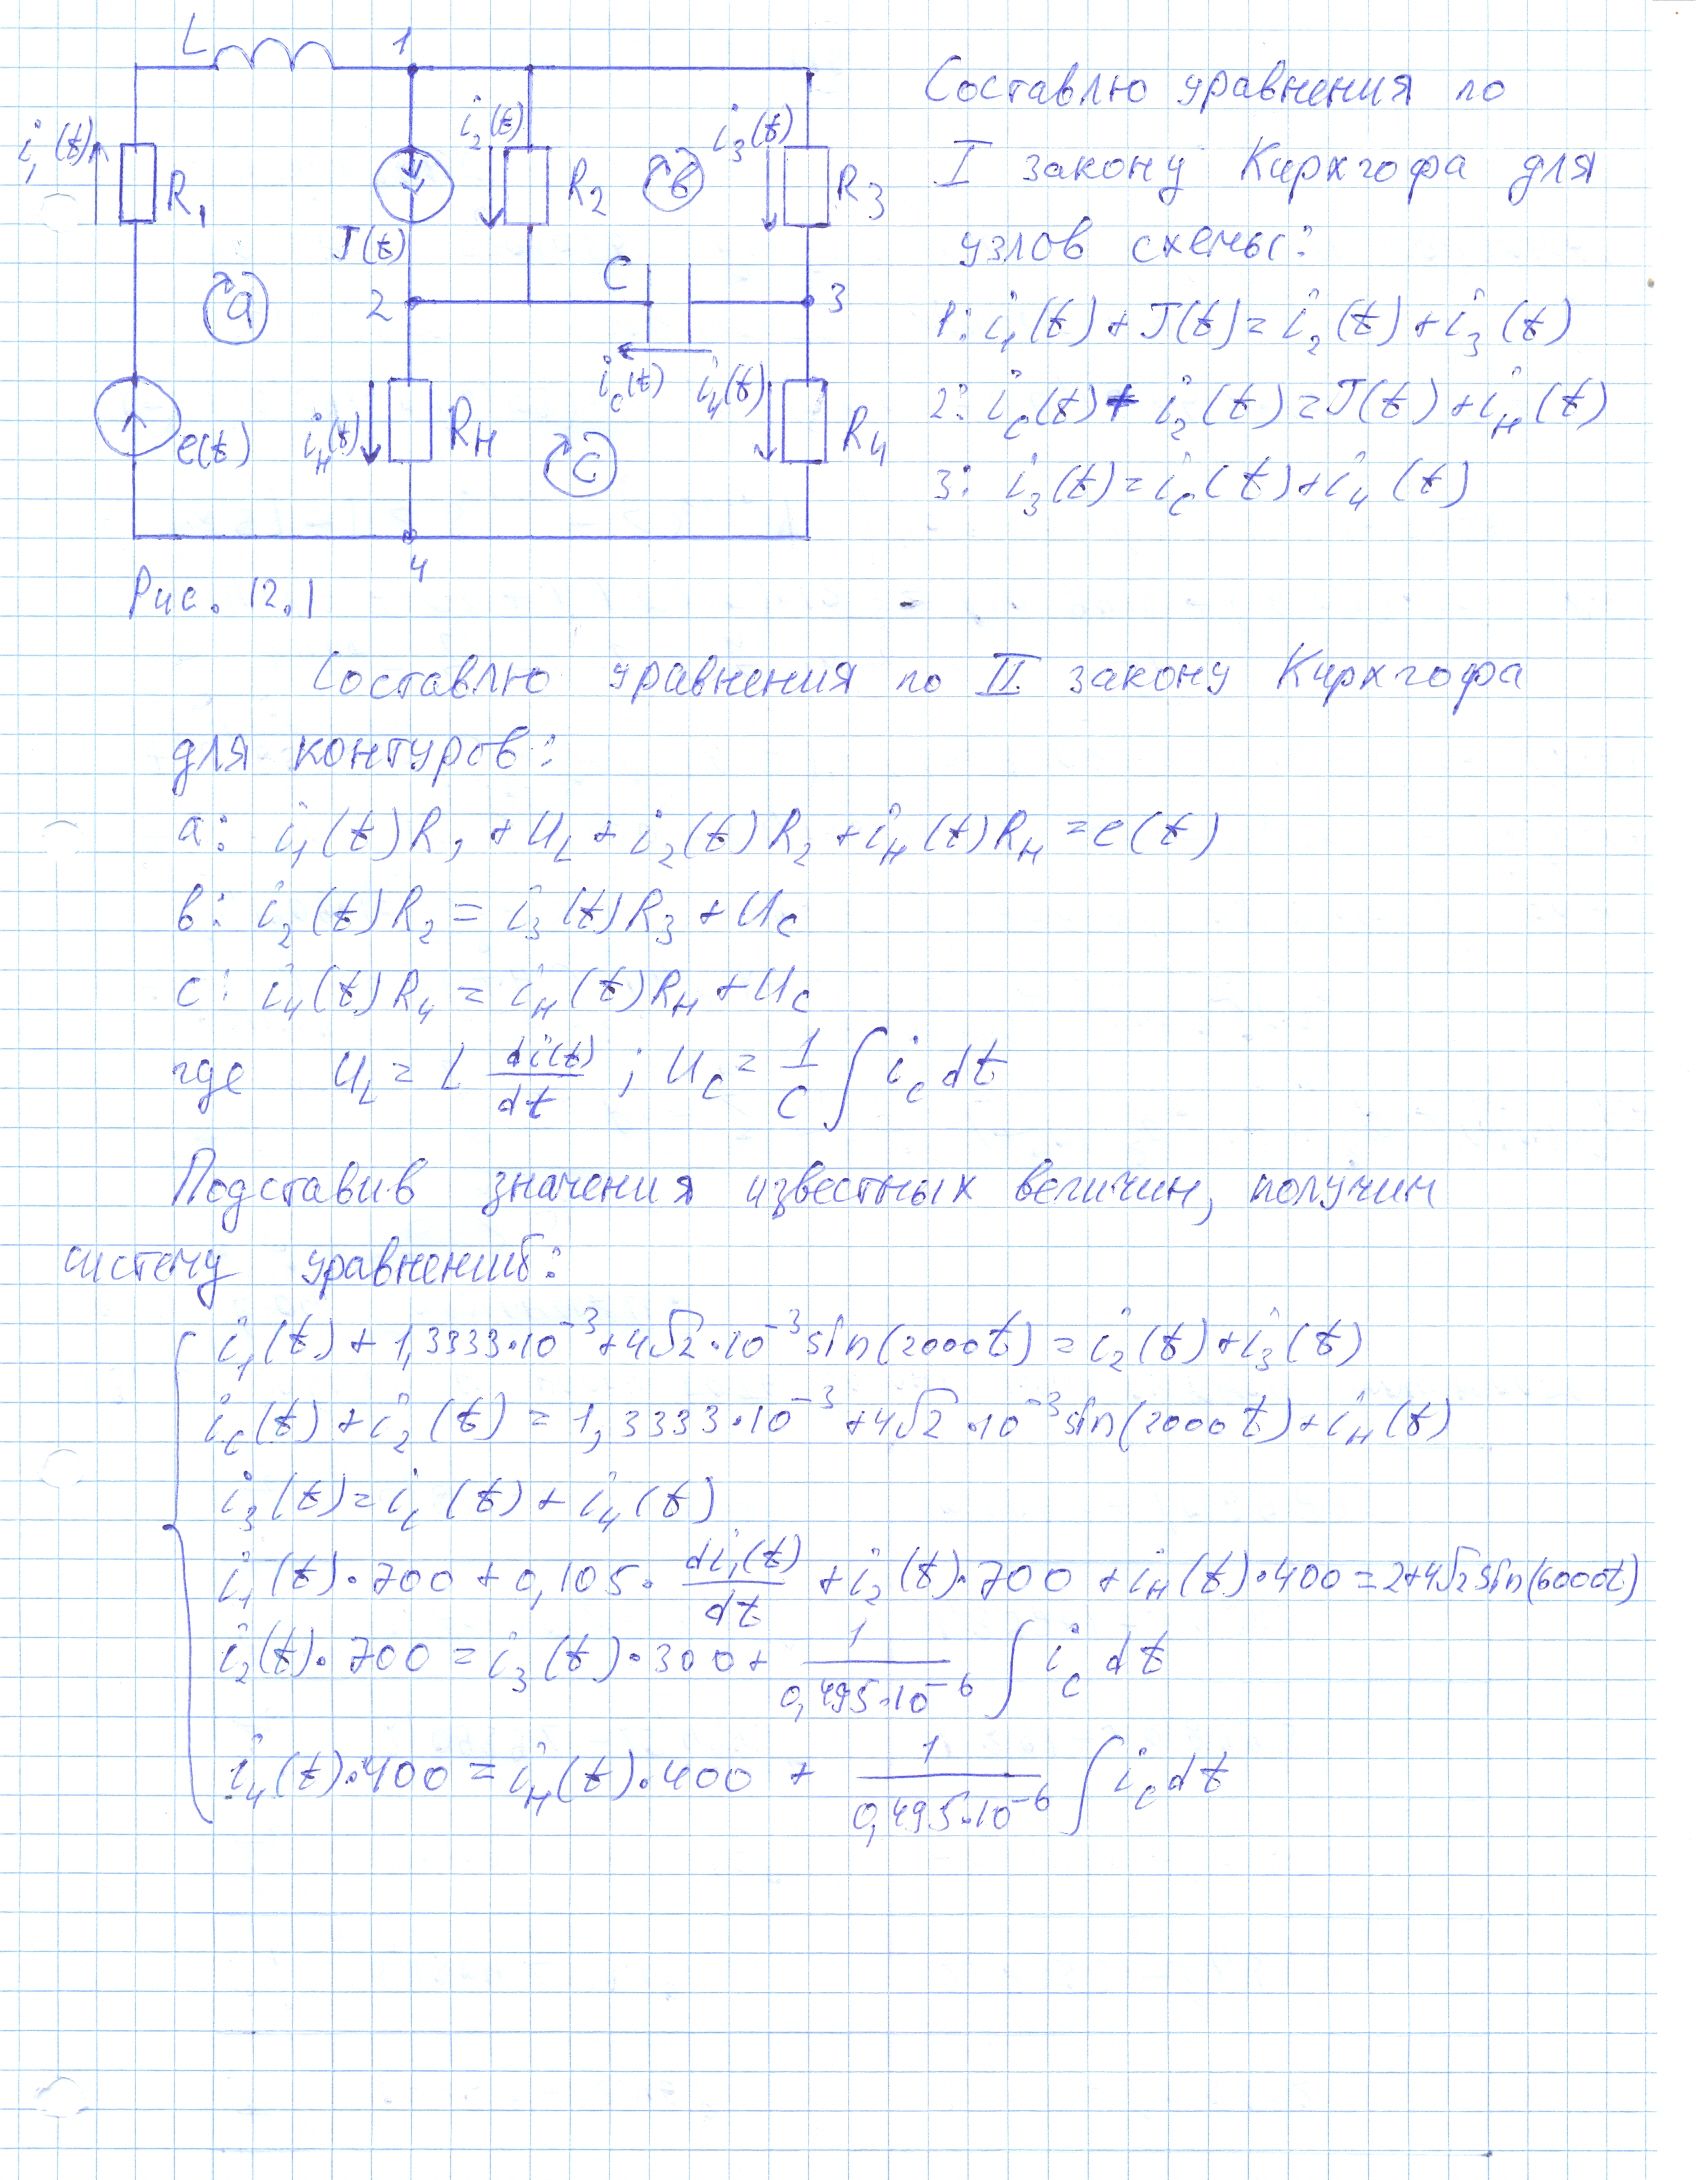 L
1
i₁(t)
R₁
J(t)
i₂(t)
R₂
в
i₃(t)
R₃
a
2
C
3
i_c(t)
i₄(t)
e(t)
i_н(t)
R_н
c
R₄
4
Рис. 12.1
Составлю уравнения по
I закону Кирхгофа для
узлов схемы:
1: i₁(t) + J(t) = i₂(t) + i₃(t)
2: i_c(t) + i₂(t) = J(t) + i_н(t)
3: i₃(t) = i_c(t) + i₄(t)
Составлю уравнения по II закону Кирхгофа
для контуров:
a: i₁(t)R₁ + U_L + i₂(t)R₂ + i_н(t)R_н = e(t)
в: i₂(t)R₂ = i₃(t)R₃ + U_c
c: i₄(t)R₄ = i_н(t)R_н + U_c
где U_L = L di(t)/dt ; U_c = 1/C ∫ i_c dt
Подставив значения известных величин, получим
систему уравнений:
i₁(t) + 1,3333·10⁻³ + 4√2·10⁻³ sin(2000t) = i₂(t) + i₃(t)
i_c(t) + i₂(t) = 1,3333·10⁻³ + 4√2·10⁻³ sin(2000t) + i_н(t)
i₃(t) = i_c(t) + i₄(t)
i₁(t)·700 + 0,105· di₁(t)/dt + i₂(t)·700 + i_н(t)·400 = 2+4√2 sin(6000t)
i₂(t)·700 = i₃(t)·300 + 1/0,495·10⁻⁶ ∫ i_c dt
i₄(t)·400 = i_н(t)·400 + 1/0,495·10⁻⁶ ∫ i_c dt